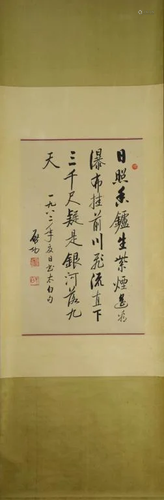 日照香鑪生紫煙遙看
瀑布挂前川飛流直下
三千尺疑是銀河落九
天 一九八二年夏日書太白句
啟功